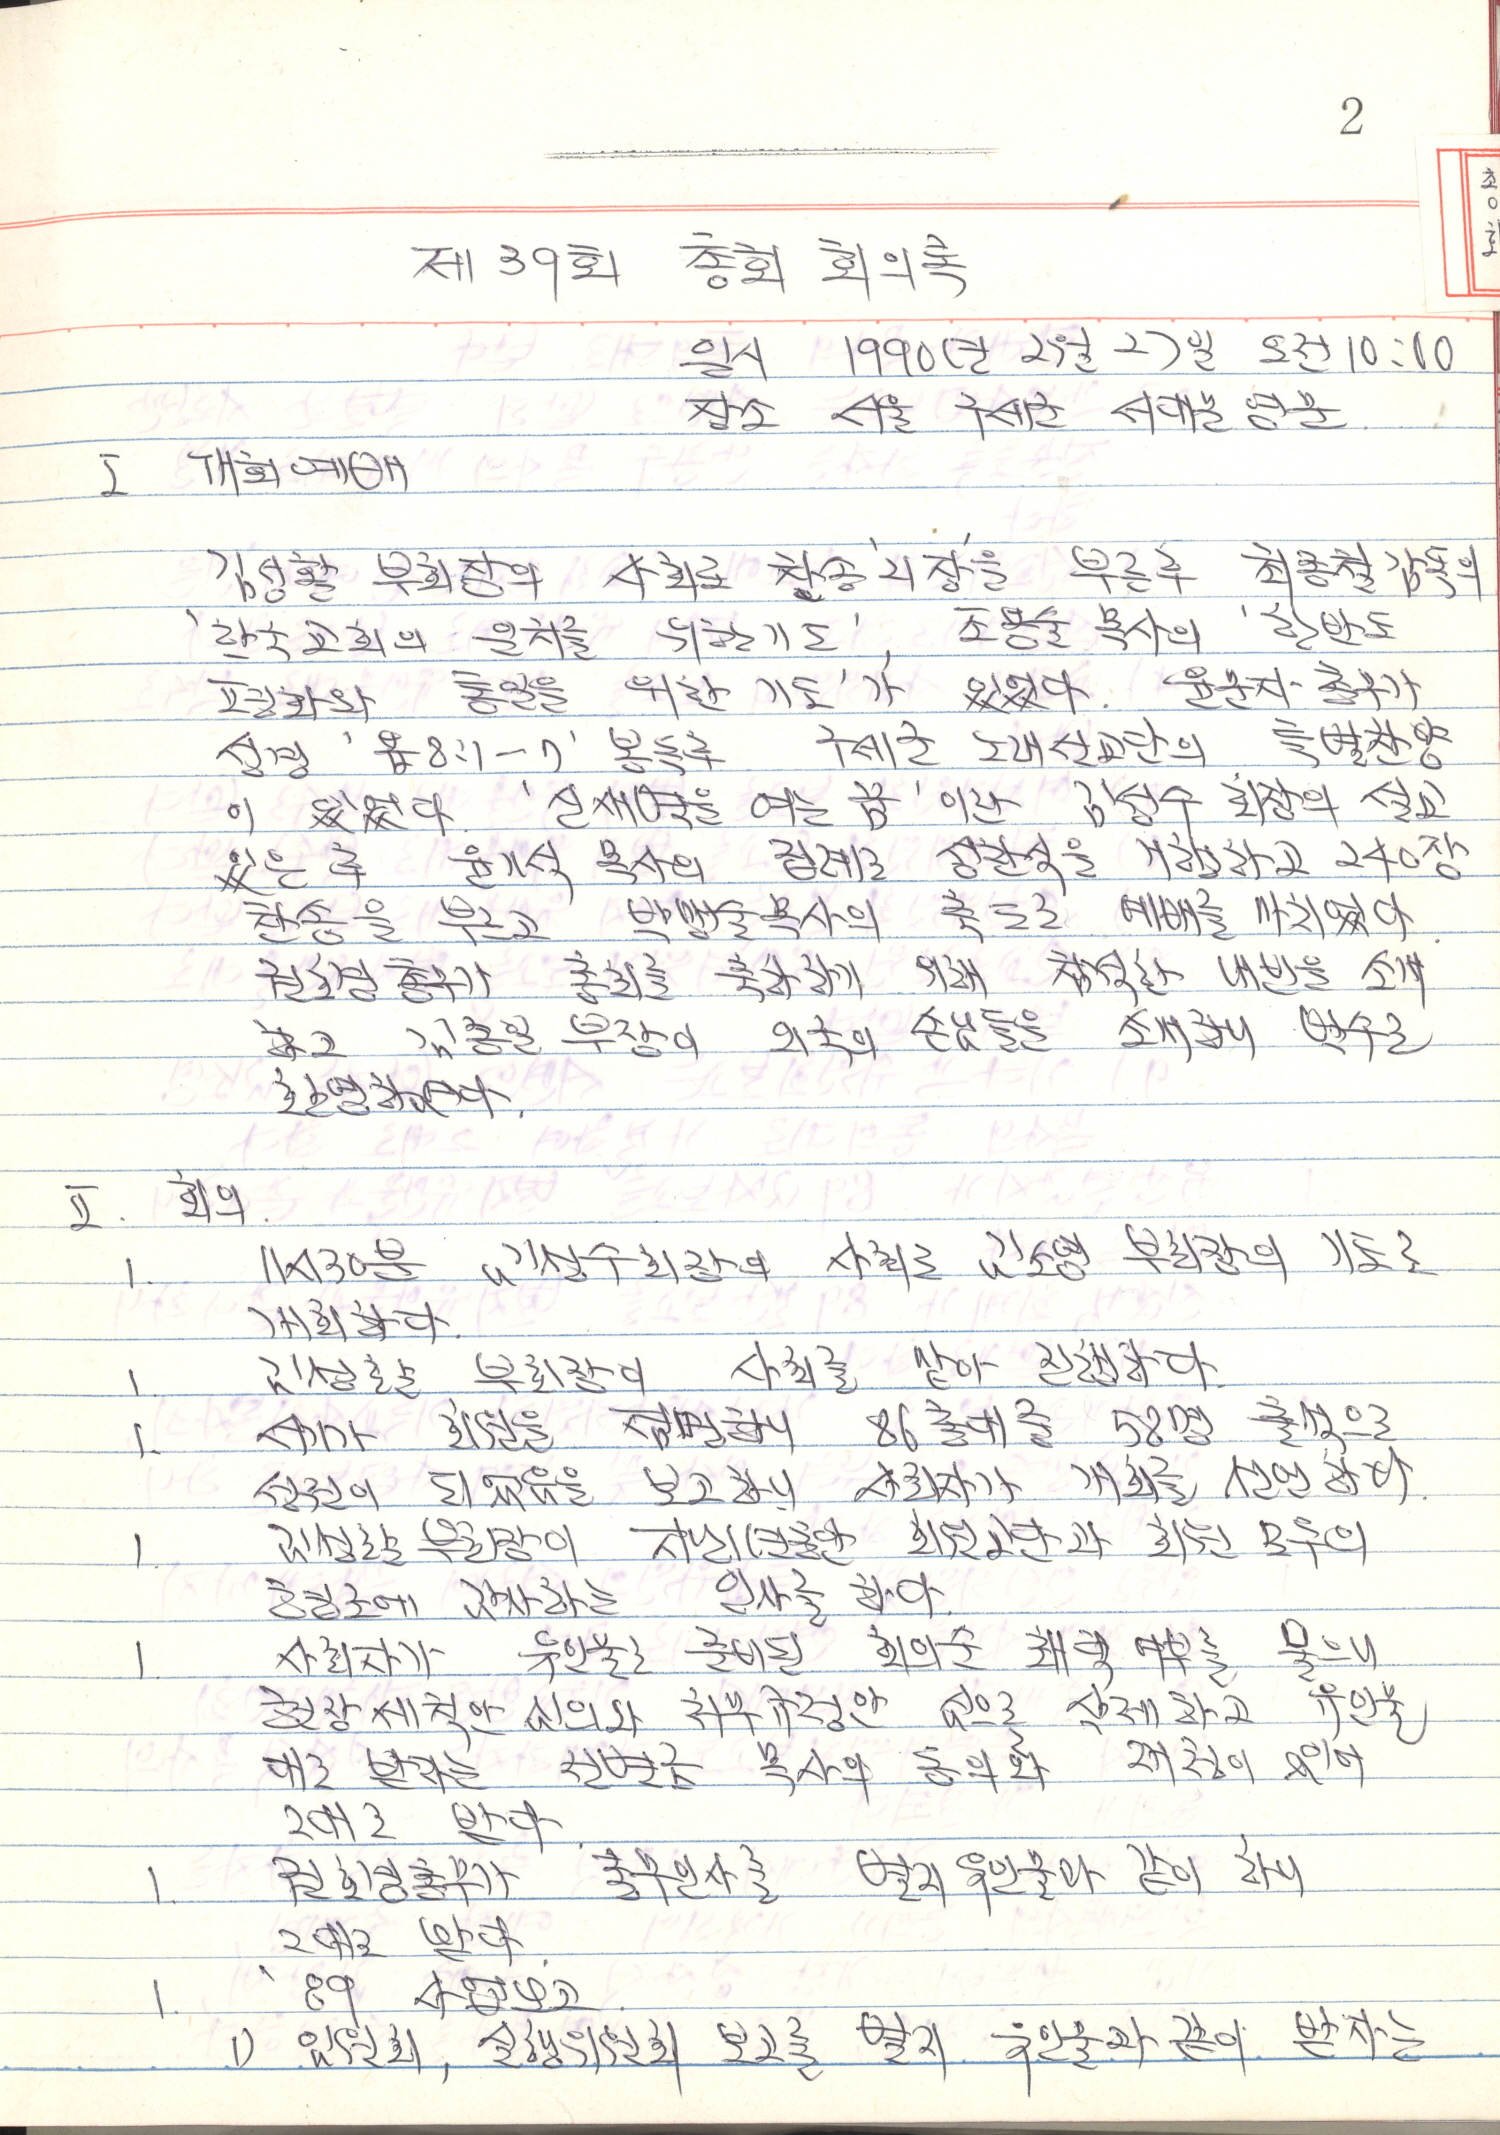 2
총회
제39회 총회 회의록
일시 1990년 2월 27일 오전 10:00
장소 서울 구세군 서대문 영문
I 개회예배
김성활 부회장의 사회로 찬송 '리장'을 부른후 최종철 감독의
'한국교회의 일치를 위한기도', 조명술 목사의 '한반도
평화와 통일을 위한 기도'가 있었다. 윤문자 총무가
성경 '욥 8:1-7' 봉독후 구세군 노래선교단의 특별찬양
이 있었다. '신새벽을 여는 꿈'이란 김성수 회장의 설교
있은 후 윤기석 목사의 집례로 성찬식을 거행하고 240장
찬송을 부르고 박명술목사의 축도로 예배를 마치었다.
권회경총무가 총회를 축하하기 위해 참석한 내빈을 소개
하고 김종일 부장이 외국의 손님들을 소개하니 박수로
환영하였다.
II. 회의.
1. 11시30분 김성수회장의 사회로 김소영 부회장의 기도로
개회하다.
1. 김성활 부회장이 사회를 맡아 진행하다.
1. 서기가 회원을 점명하니 86총대중 58명 출석으로
성원이 되었음을 보고하니 사회자가 개회를 선언하다.
1. 김성활 부회장이 지난1년동안 회원교단과 회원 모두의
협조에 감사하는 인사를 하다.
1. 사회자가 유인물로 준비된 회의순 채택 여부를 물으니
헌장세칙안 심의와 처무규정안 심의로 삭제하고 유인물
대로 받자는 전병금 목사의 동의와 재청이 있어
그대로 받다.
1. 권회경총무가 총무인사를 별지 유인물과 같이 하니
그대로 받다.
1. '89 사업보고.
1) 임원회, 실행위원회 보고를 별지 유인물과 같이 받자는